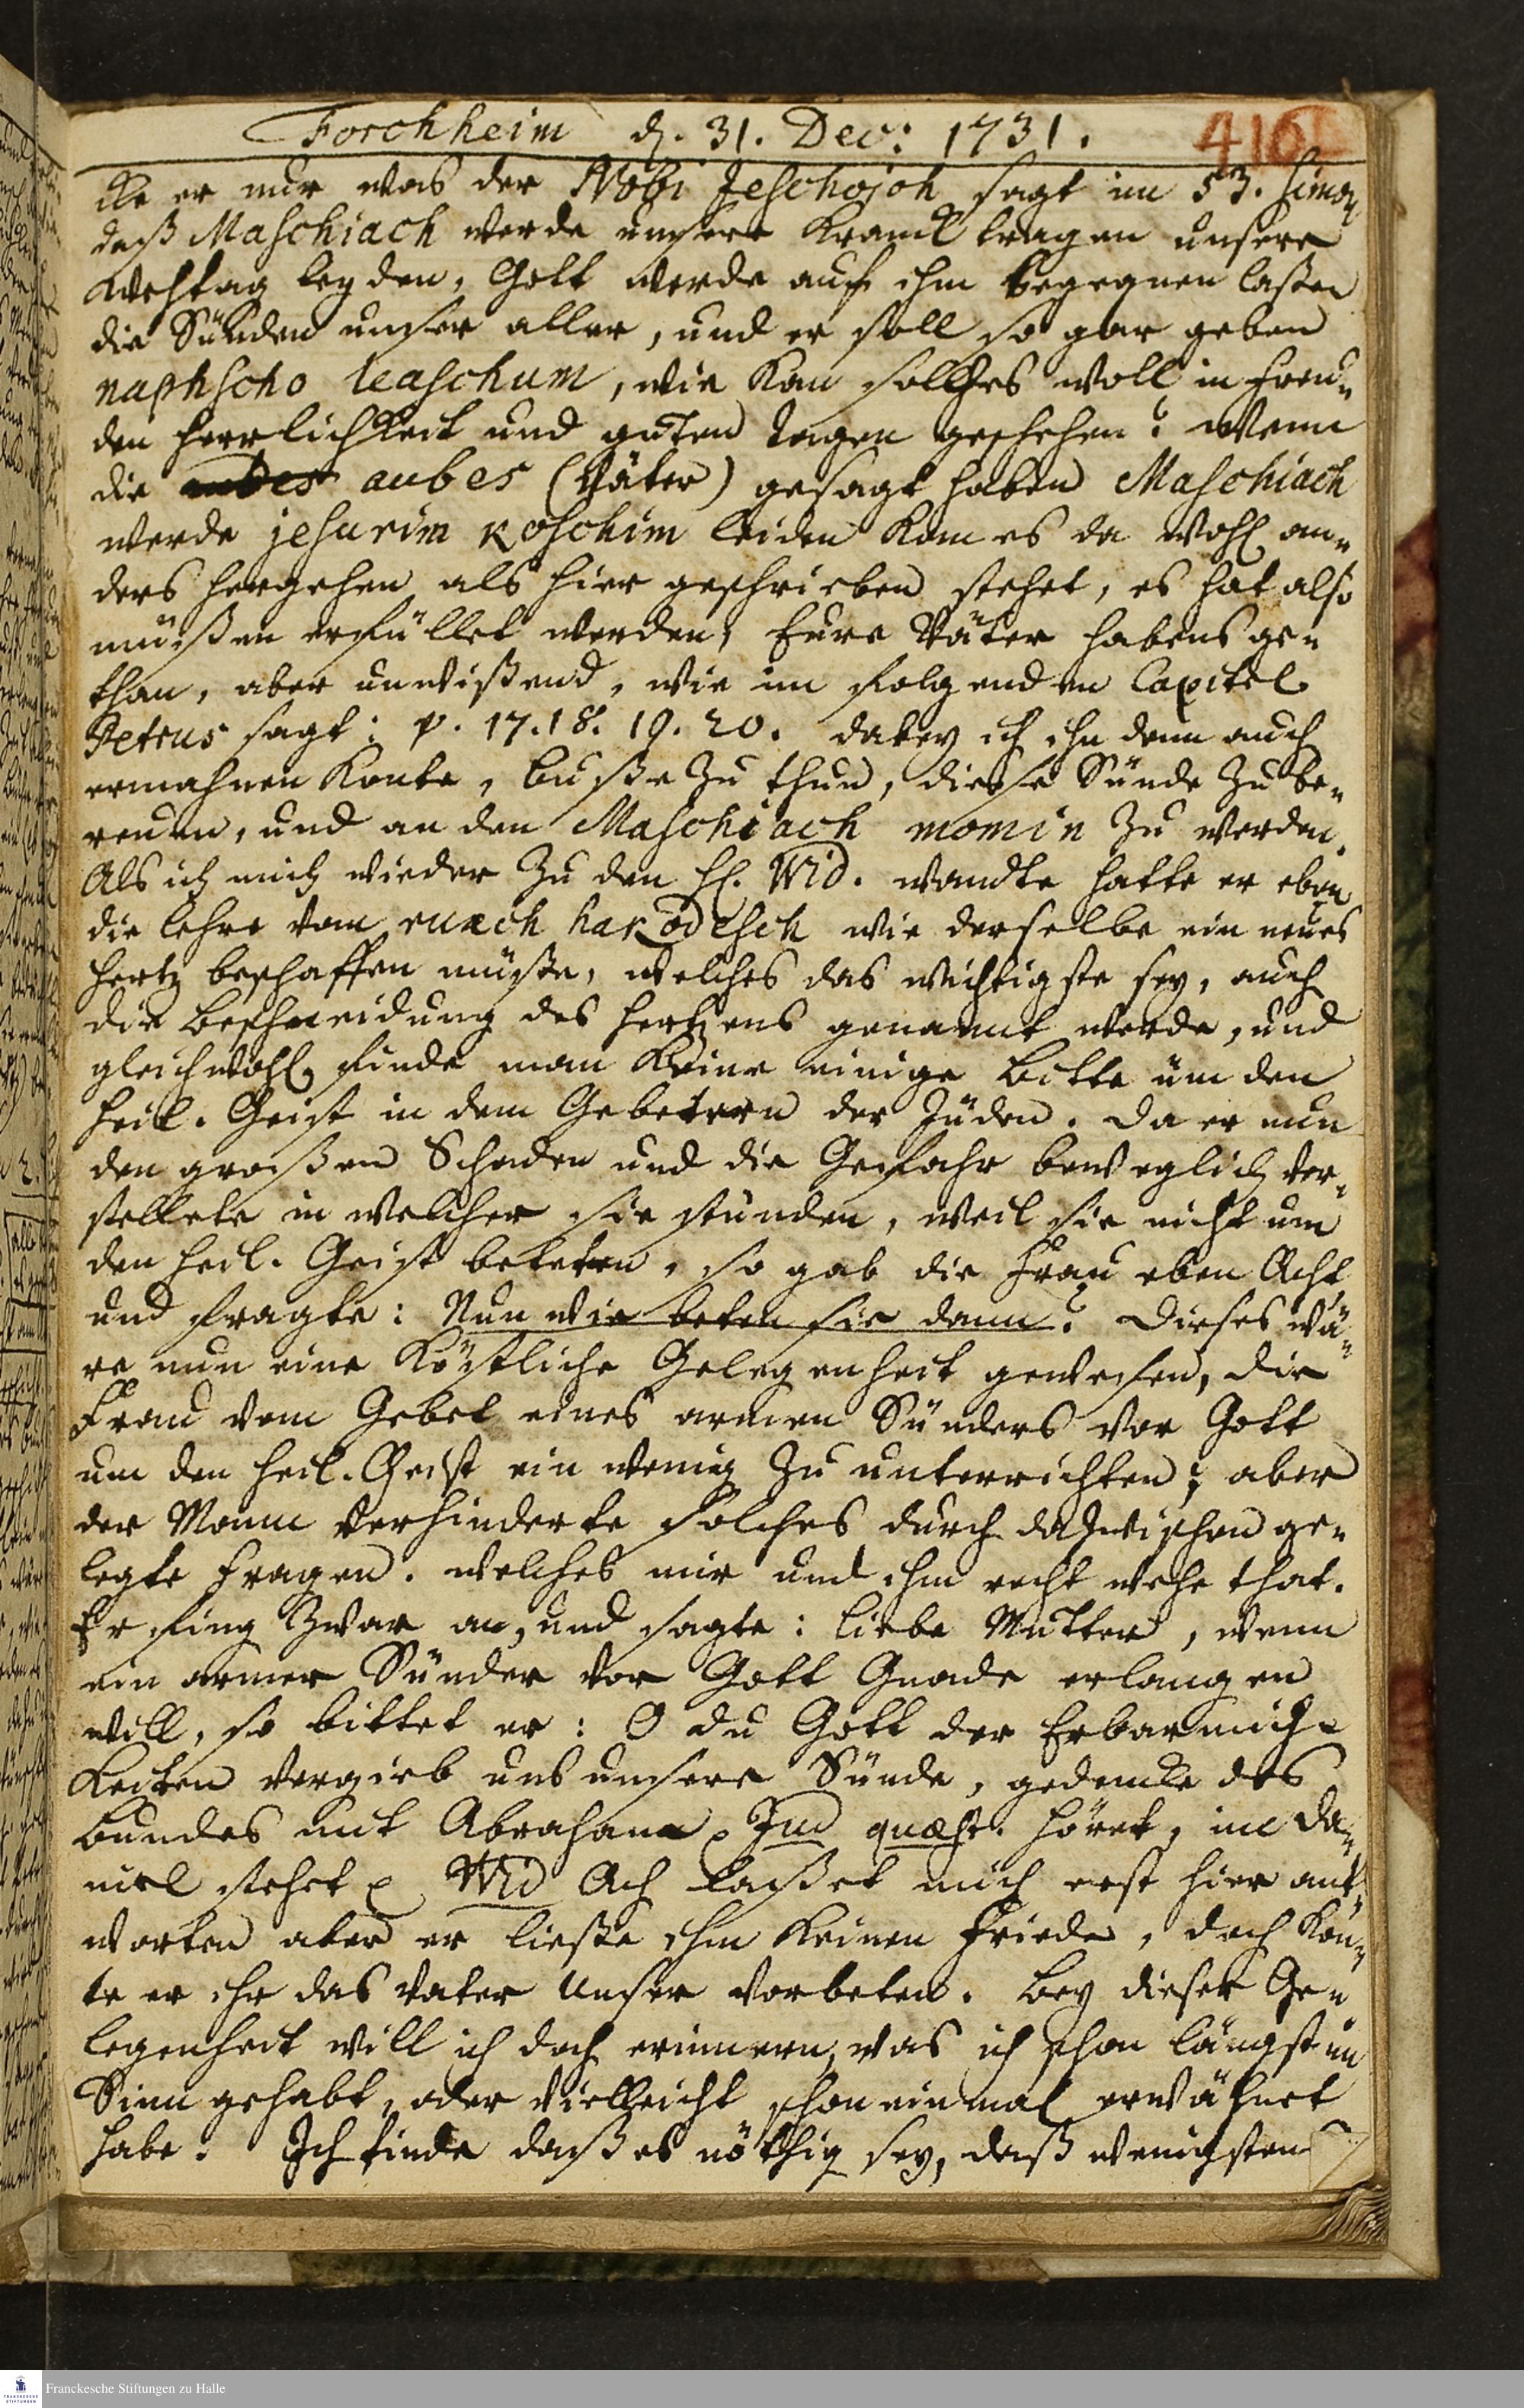 Forchheim d. 31. Dec: 1731.
416
cke er nur was der Nobi Jeschojoh sagt im 53. Simon
daß Maschiach werde unsere Kranckh tragen unsere
Wehtag leyden, Gott werde auf ihm begegnen laßen
die Sünden unser aller, und er soll so gar geben
naphscho leaschum, wie kan solches woll in Freu-
den Herrlichkeit und guten Tagen geschehen? Wenn
die aubes aubes (Väter) gesagt haben Maschiach
werde jesurim koschim leiden kan es da wohl an-
ders hergehen als hier geschrieben stehet, es hat also
müßen erfüllet werden, Eure Väter habens ge-
than, aber unwißend, wie im folgenden Capitel
Petrus sagt: v. 17. 18. 19. 20. dabey ich ihn denn auch
ermahnen konte, Buße zu thun, diese Sünde zu be-
reuen, und an den Maschiach momin zu werden.
Als ich mich wieder zu den H. Wid. wandte hatte er eben
die Lehre vom ruach hakodesch wie derselbe ein neues
Hertz beschaffen müste, welches das wichtigste sey, auch
die Beschneidung des Hertzens genannt werde, und
gleichwohl finde man keine einige Bitte üm den
Heil. Geist in dem Gebetern der Juden. Da er nun
den großen Schaden und die Gefahr beweglich vor-
stellete in welcher sie stunden, weil sie nicht um
den Heil. Geist beteten, so gab die Frau eben Acht
und fragte: Nun wie beten sie denn? Dieses wä-
re nun eine köstliche Gelegenheit gewesen, die
Frau vom Gebet eines armen Sünders vor Gott
um den Heil. Geist ein wenig zu unterrichten; aber
der Mann verhinderte solches durch dazwischen ge-
legte Fragen. welches mir und ihm recht wehe that.
Er fing zwar an, und sagte: Liebe Mutter, wenn
ein armer Sünder vor Gott Gnade erlangen
will, so bittet er: O du Gott der Erbarmich-
keiten vergieb uns unsere Sünde, gedencke des
Bundes mit Abraham Jud quæst. höret, im Da-
niel stehet Wid Ach laßet mich erst hier ant-
worten aber er ließe ihm keinen Friede, doch kön-
te er ihr das Vater unser vorbeten. Bey dieser Ge-
legenheit will ich doch erinnern, was ich schon längst im
Sinn gehabt, oder vielleicht schon einmal erwähnet
habe. Ich finde daß es nöthig sey, daß wenigsten
Franckesche Stiftungen zu Halle